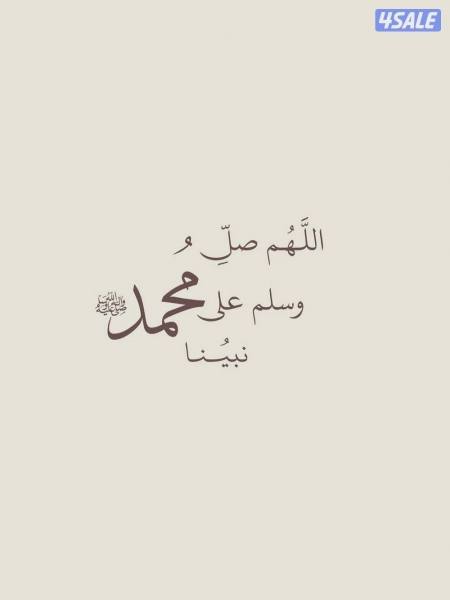 4SALE
اللَّهُم صلِّ
وسلم على محمد ﷺ
نبيُنا